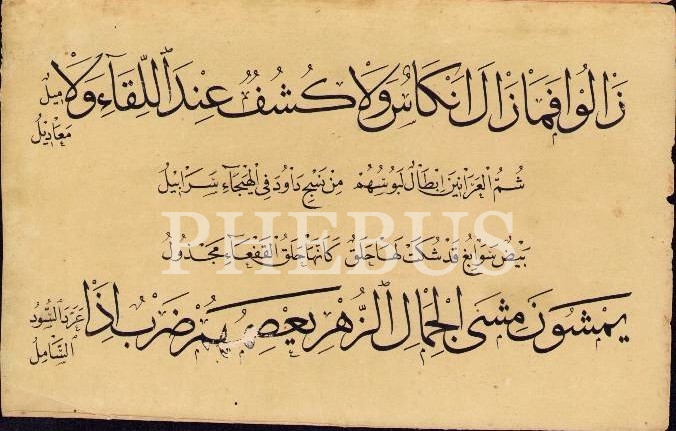 زَالُوا فَمَا زَالَ اَنْكَاسٌ وَلَا كُشُفٌ عِنْدَ اللِّقَاءِ وَلَا مِيلٌ
مَعَازِيلُ
شُمُّ الْعَرَانِينَ اَبْطَالٌ لَبُوسُهُمْ مِنْ نَسْجِ دَاوُدَ فِي الْهَيْجَاءِ سَرَابِيلُ
PHEBUS
بِيضٌ سَوَابِغُ قَدْ شُكَّتْ لَهَا حَلَقٌ كَاَنَّهَا حَلَقُ الْقَفْعَاءِ مَجْدُولُ
يَمْشُونَ مَشْىَ الْجِمَالِ الزُّهْرِ يَعْصِمُهُمْ ضَرْبٌ اِذَا عَرَّدَ السُّودُ